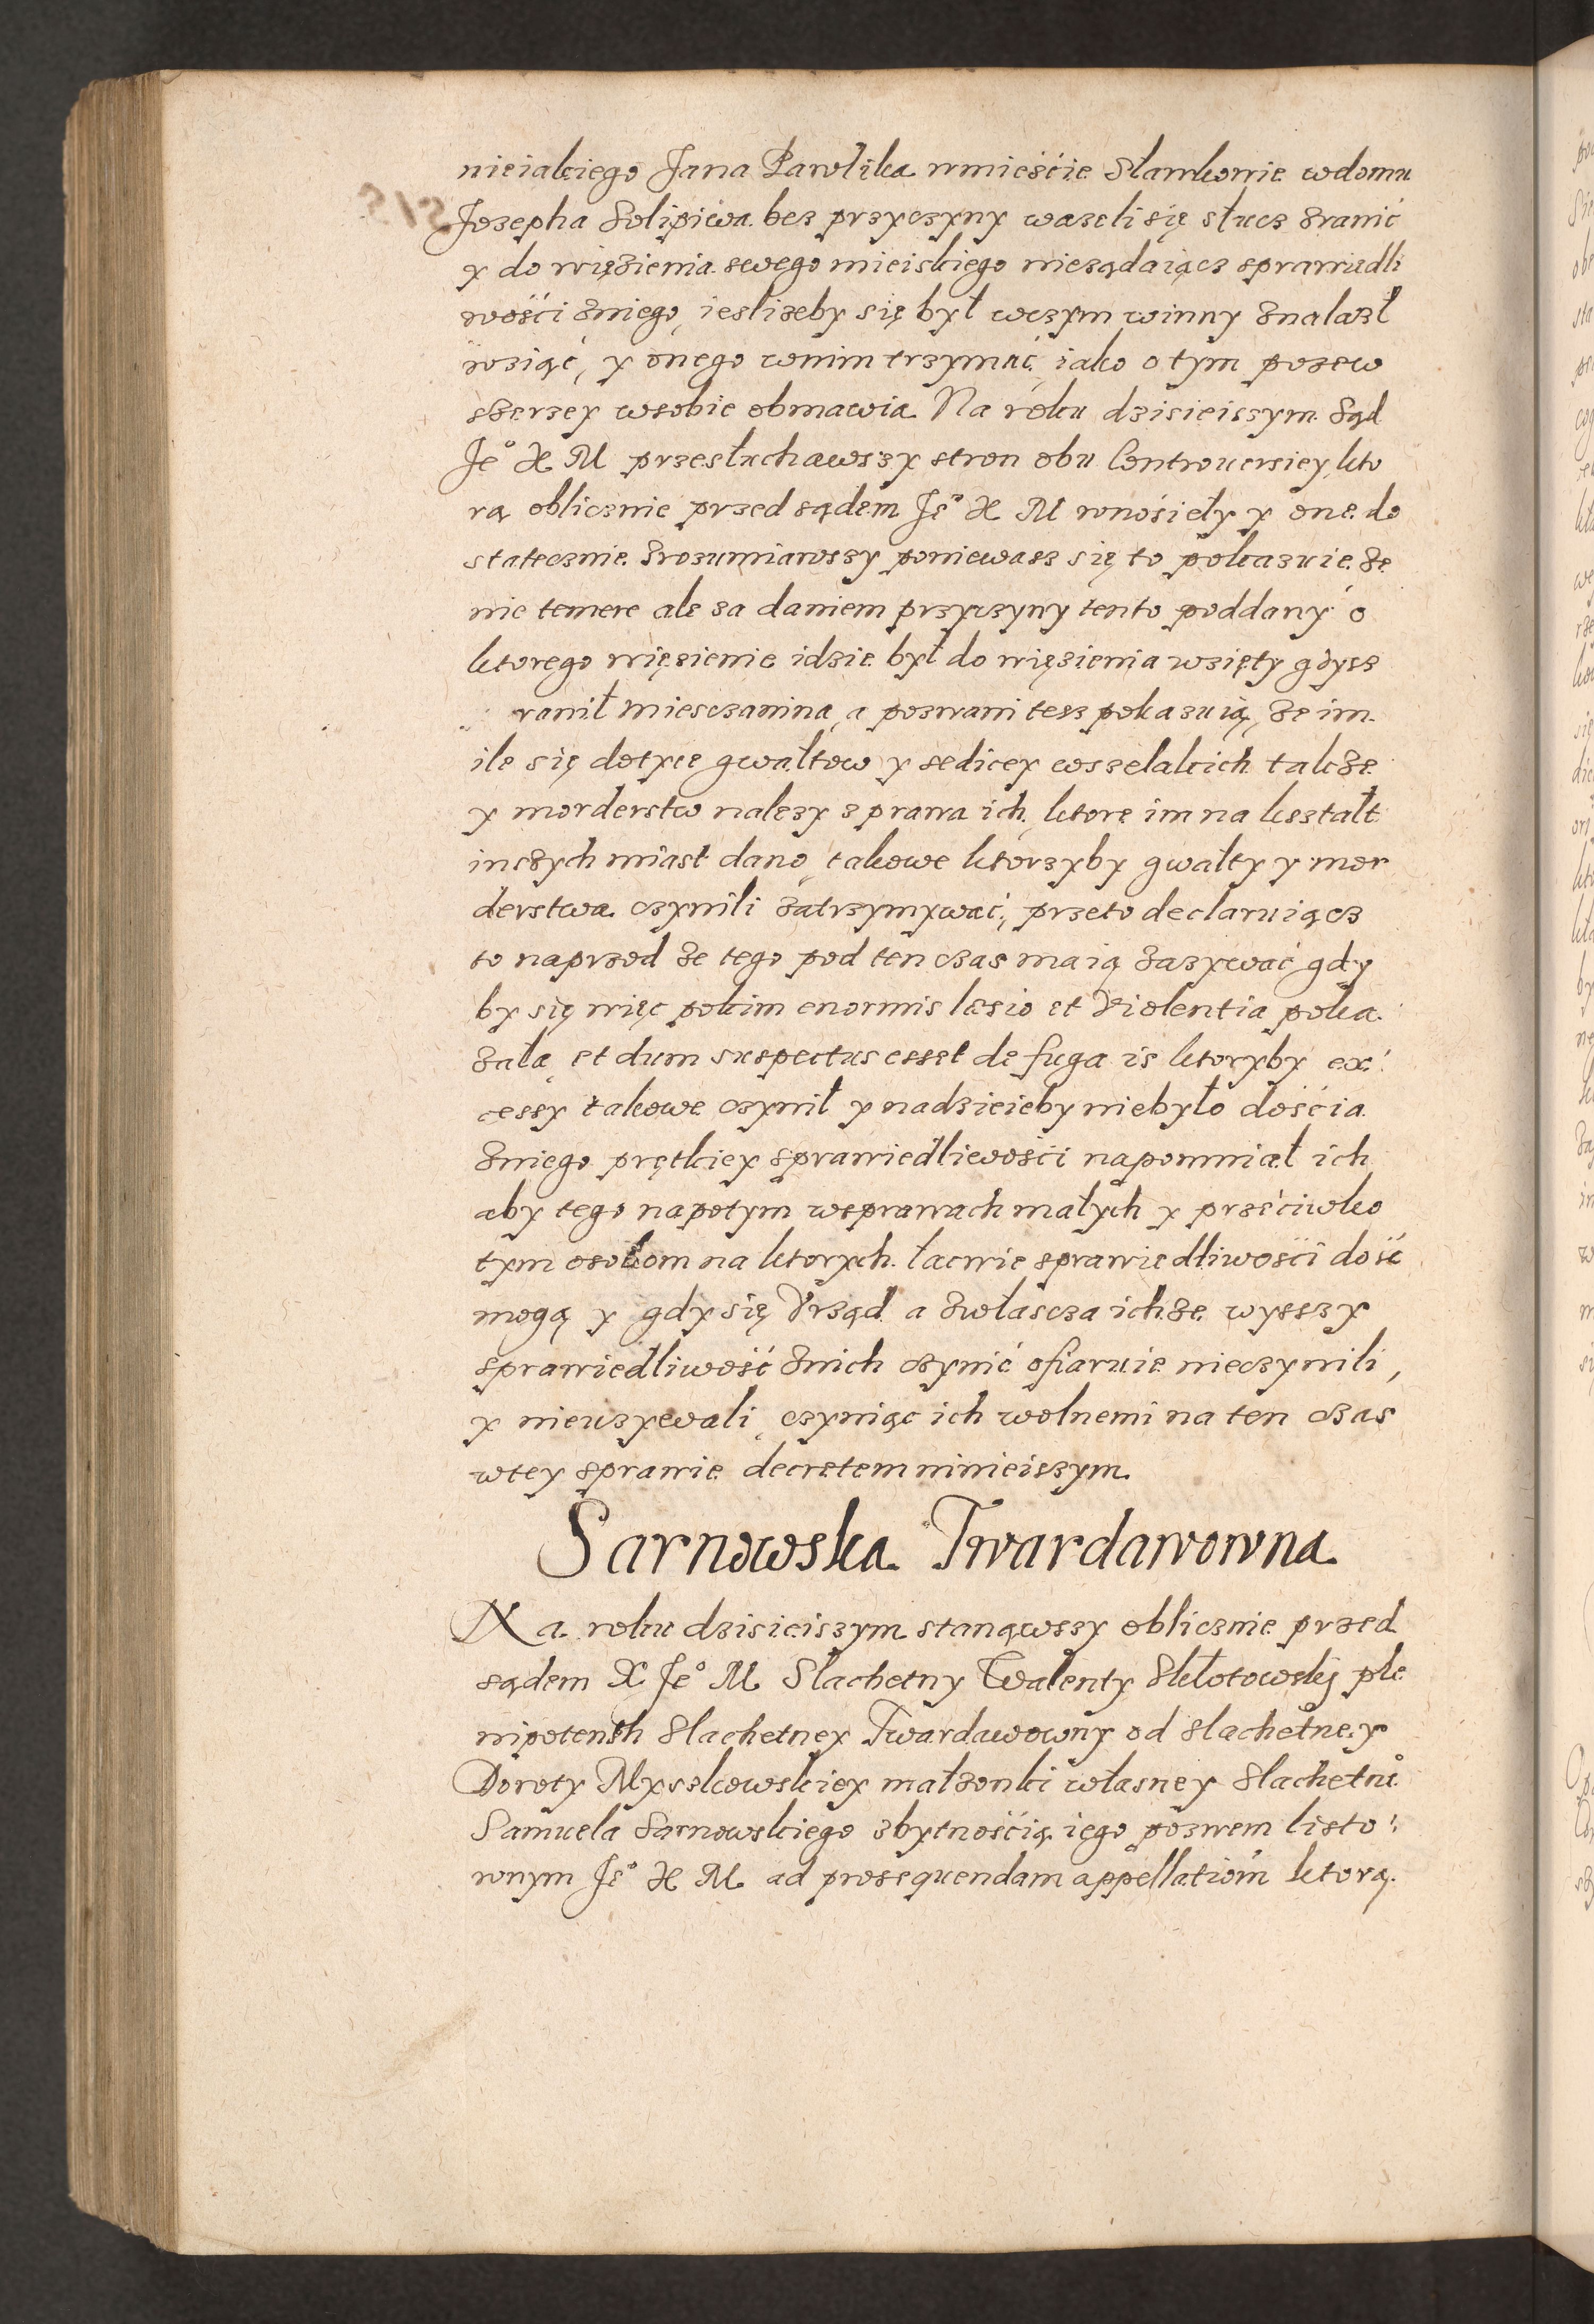 nieiakiego Jana Pawlika wmieście Sławkowie wdomu
Jozepha Solipiwa bez przyczyny wazeli się słucz zranić
y do więzienia swego mieiskiego nieządaiącz sprawiedli
wości zniego, iesliżeby się był wczym winny znalazł
wziąć, y onego wnim trzymać, iako o tym pozew
szerzey wsobie obmawia Na roku dzisieiszym Sąd
Je° X M przesłuchawszy stron obu Controuersiey, kto
rą oblicznie przed sądem Je° X M wnosiely y onę do
statecznie zrozumiawszy poniewasz się to pokazuie że
nie temere ale za daniem przyczyny tento poddany o
ktorego więzienie idzie był do więzienia wzięty gdysz
ranił miesczanina, a pozwani tesz pokazuią, że im
ile się dotyce gwałtow y sedicey wszelakich także
y morderstw nalezy z prawa ich, ktore im na kształt
inszych miast dano, takowe ktorzyby gwałty y mor
derstwa czynili zatrzymywać, przeto declaruiącz
to naprzod że tego pod ten czas maią zazywać gdy
by się więc pokim enormis læsio et Violentia poka
zała, et dum suspectus esset de fuga is ktoryby ex
cessy takowe czynił y nadzieieby niebyło dościa
zniego prętkiey sprawiedliewości napomniał ich
aby tego napotym wsprawach małych y prześciwko
tym osobom na ktorych łacwie sprawiedliwości dość
mogą y gdy się Vrząd a zwłascza ichże wysszy
sprawiedliwość znich czynić ofiaruie nieczynili,
y nieuzywali, czyniąc ich wolnemi na ten czas
wtey sprawie decretem ninieiszym.
Sarnowska Twardawowna
Na roku dzisieiszym stanąwszy oblicznie przed
sądem X Je° M Slachetny Walenty Skłotowskij ple
nipotenth Slachetney Twardawowny od slachetney
Doroty Myszkowskiey małzonki własney Slachetn°
Samuela Sarnowskiego zbytnością iego pozwem listo
wnym Je° X M ad prosequendam appellatiom ktorą